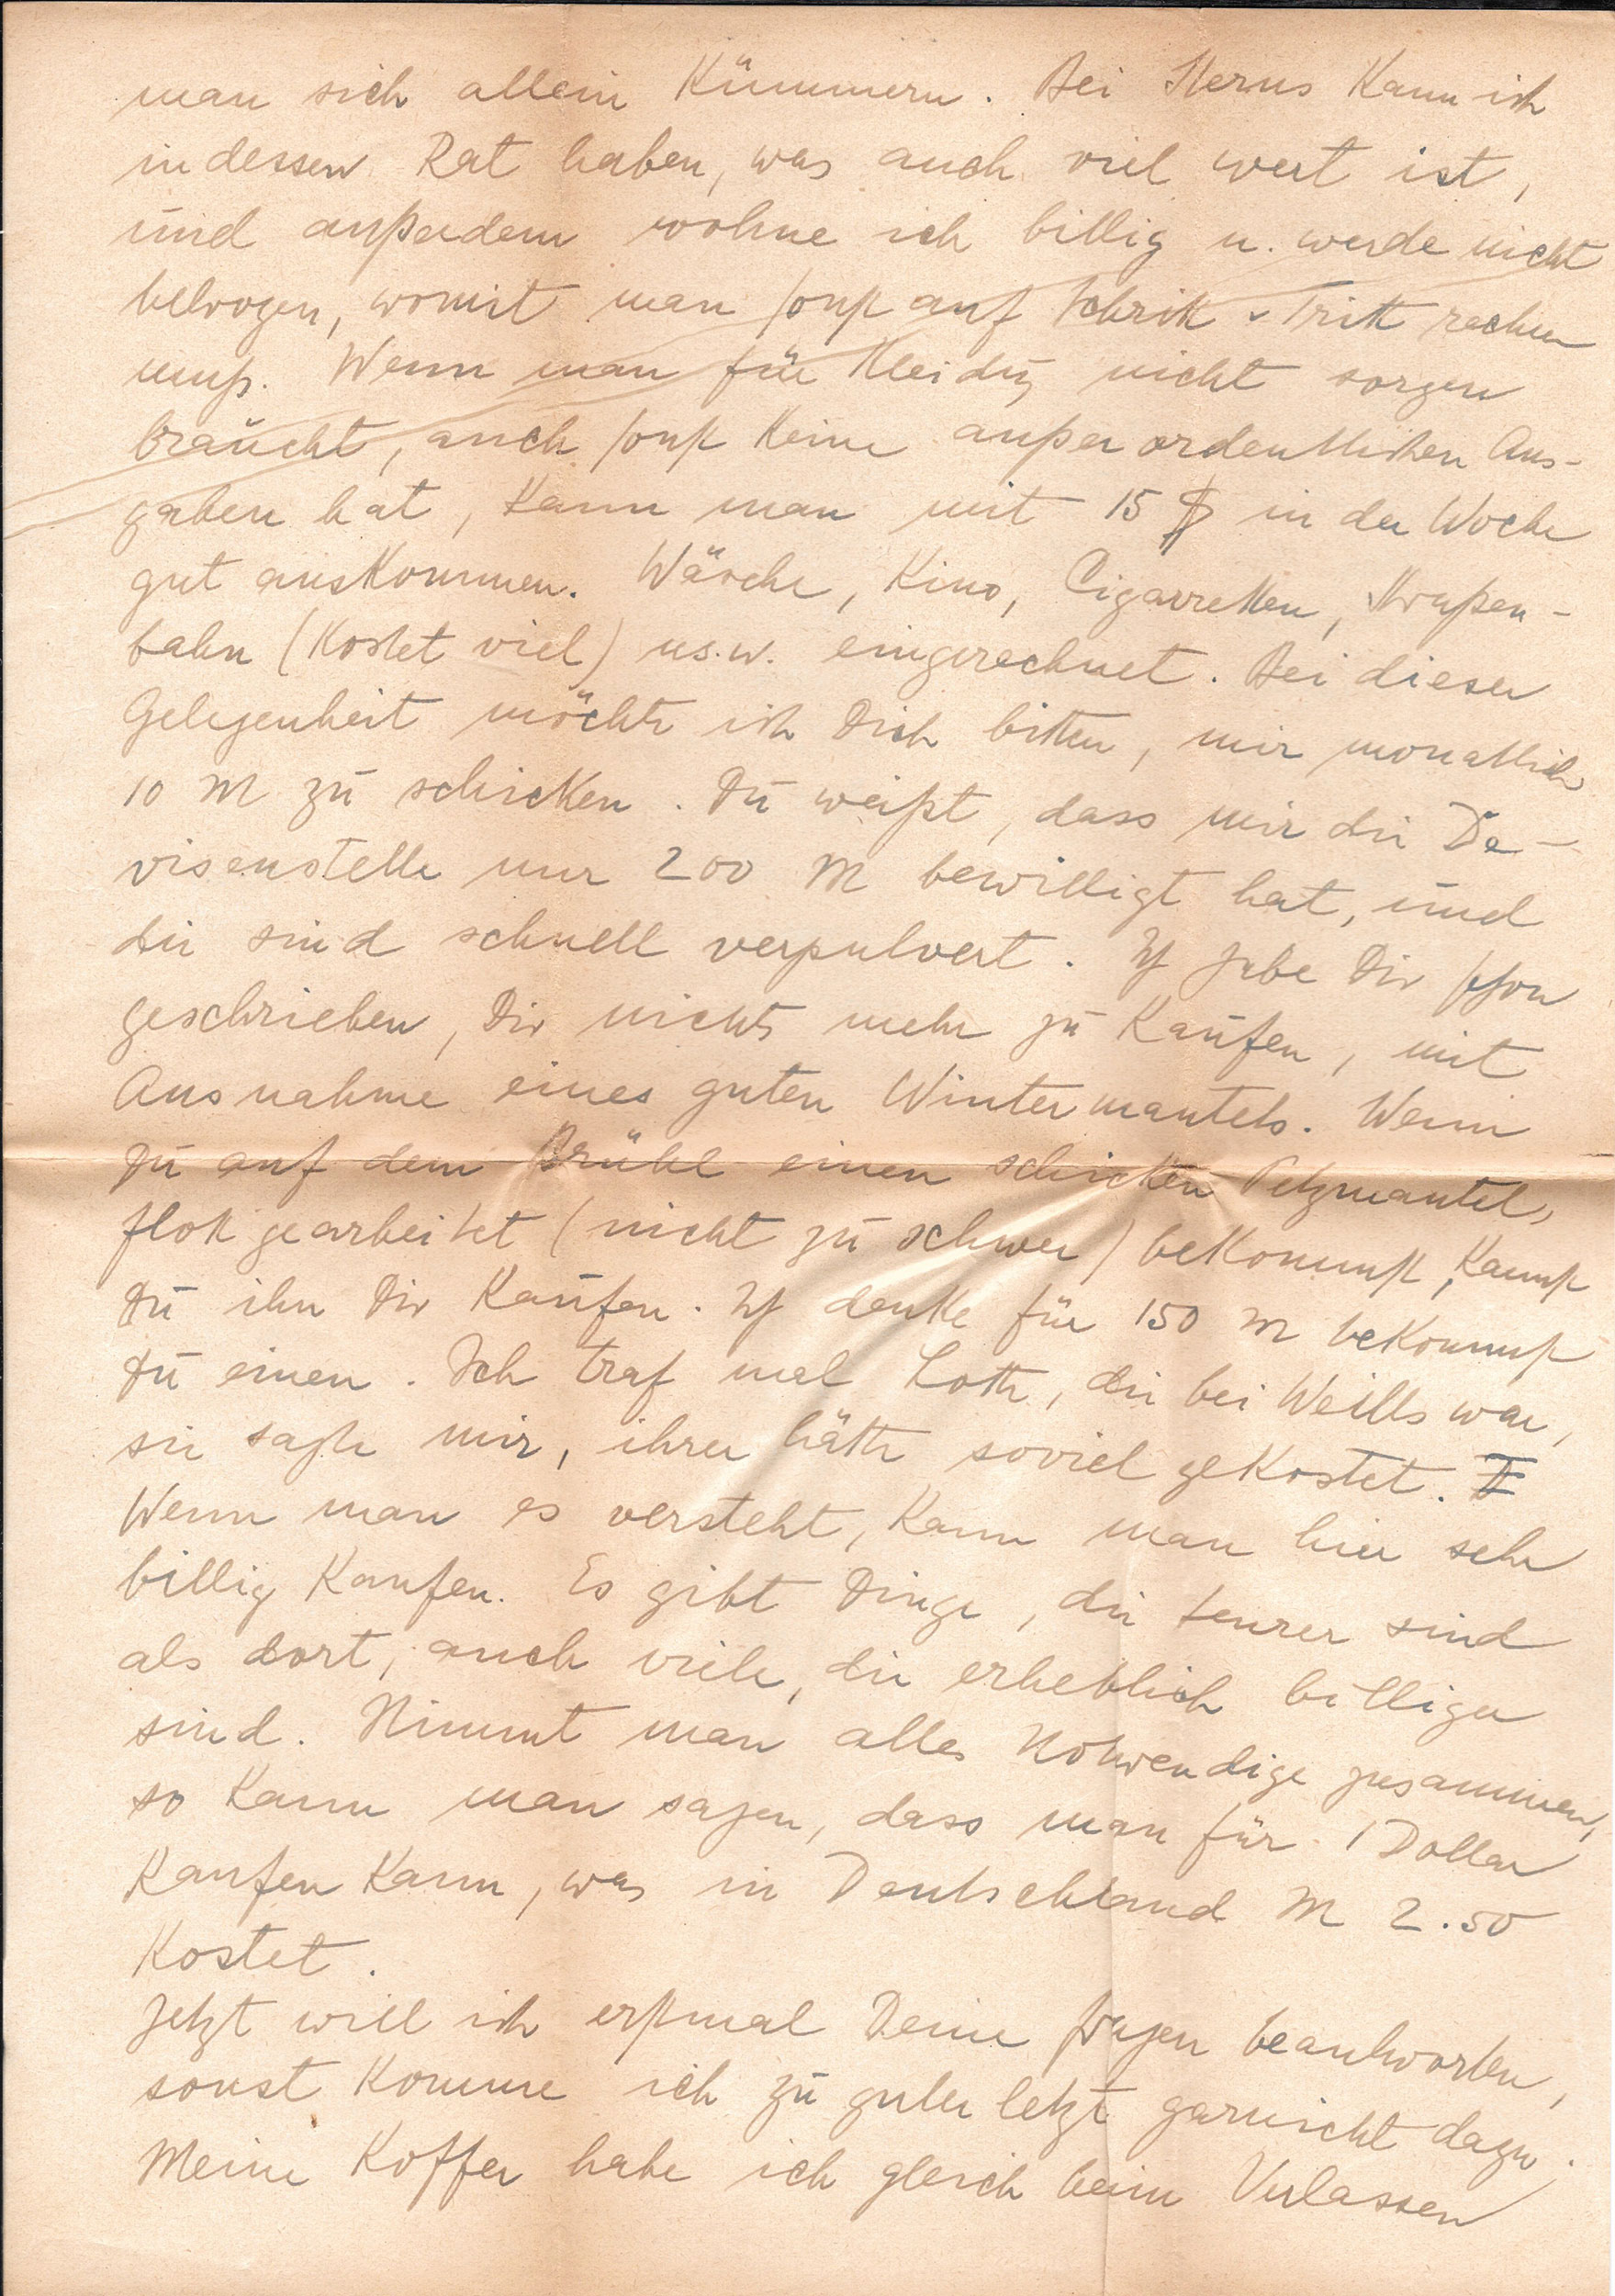 man sich allein kümmern. Bei Sterns kann ich
indessen Rat haben, was auch viel wert ist,
und außerdem wohne ich billig u. werde nicht
betrogen, womit man sonst auf Schritt u. Tritt rechnen
muß. Wenn man für Kleidung nicht sorgen
braucht, auch sonst keine außerordentlichen Aus-
gaben hat, kann man mit 15 $ in der Woche
gut auskommen. Wäsche, Kino, Cigarretten, Straßen-
bahn (kostet viel) us.w. eingerechnet. Bei dieser
Gelegenheit möchte ich Dich bitten, mir monatlich
10 M zu schicken. Du weißt, dass mir die De-
visenstelle nur 200 M bewilligt hat, und
die sind schnell verpulvert. Ich habe Dir schon
geschrieben, Dir nichts mehr zu kaufen, mit
Ausnahme eines guten Wintermantels. Wenn
Du auf dem Brühl einen schicken Pelzmantel,
flott gearbeitet (nicht zu schwer) bekommst, kannst
Du ihn Dir kaufen. Ich denke für 150 M bekommst
Du einen. Ich traf mal Lotte, die bei Weills war,
sie sagte mir, ihrer hätte soviel gekostet.
Wenn man es versteht, kann man hier sehr
billig kaufen. Es gibt Dinge, die teurer sind
als dort, auch viele, die erheblich billiger
sind. Nimmt man alles Notwendige zusammen,
so kann man sagen, dass man für 1 Dollar
kaufen kann, was in Deutschland M 2.50
kostet.
Jetzt will ich erstmal Deine Fragen beantworten,
sonst komme ich zu guter letzt garnicht dazu.
Meine Koffer habe ich gleich beim Verlassen